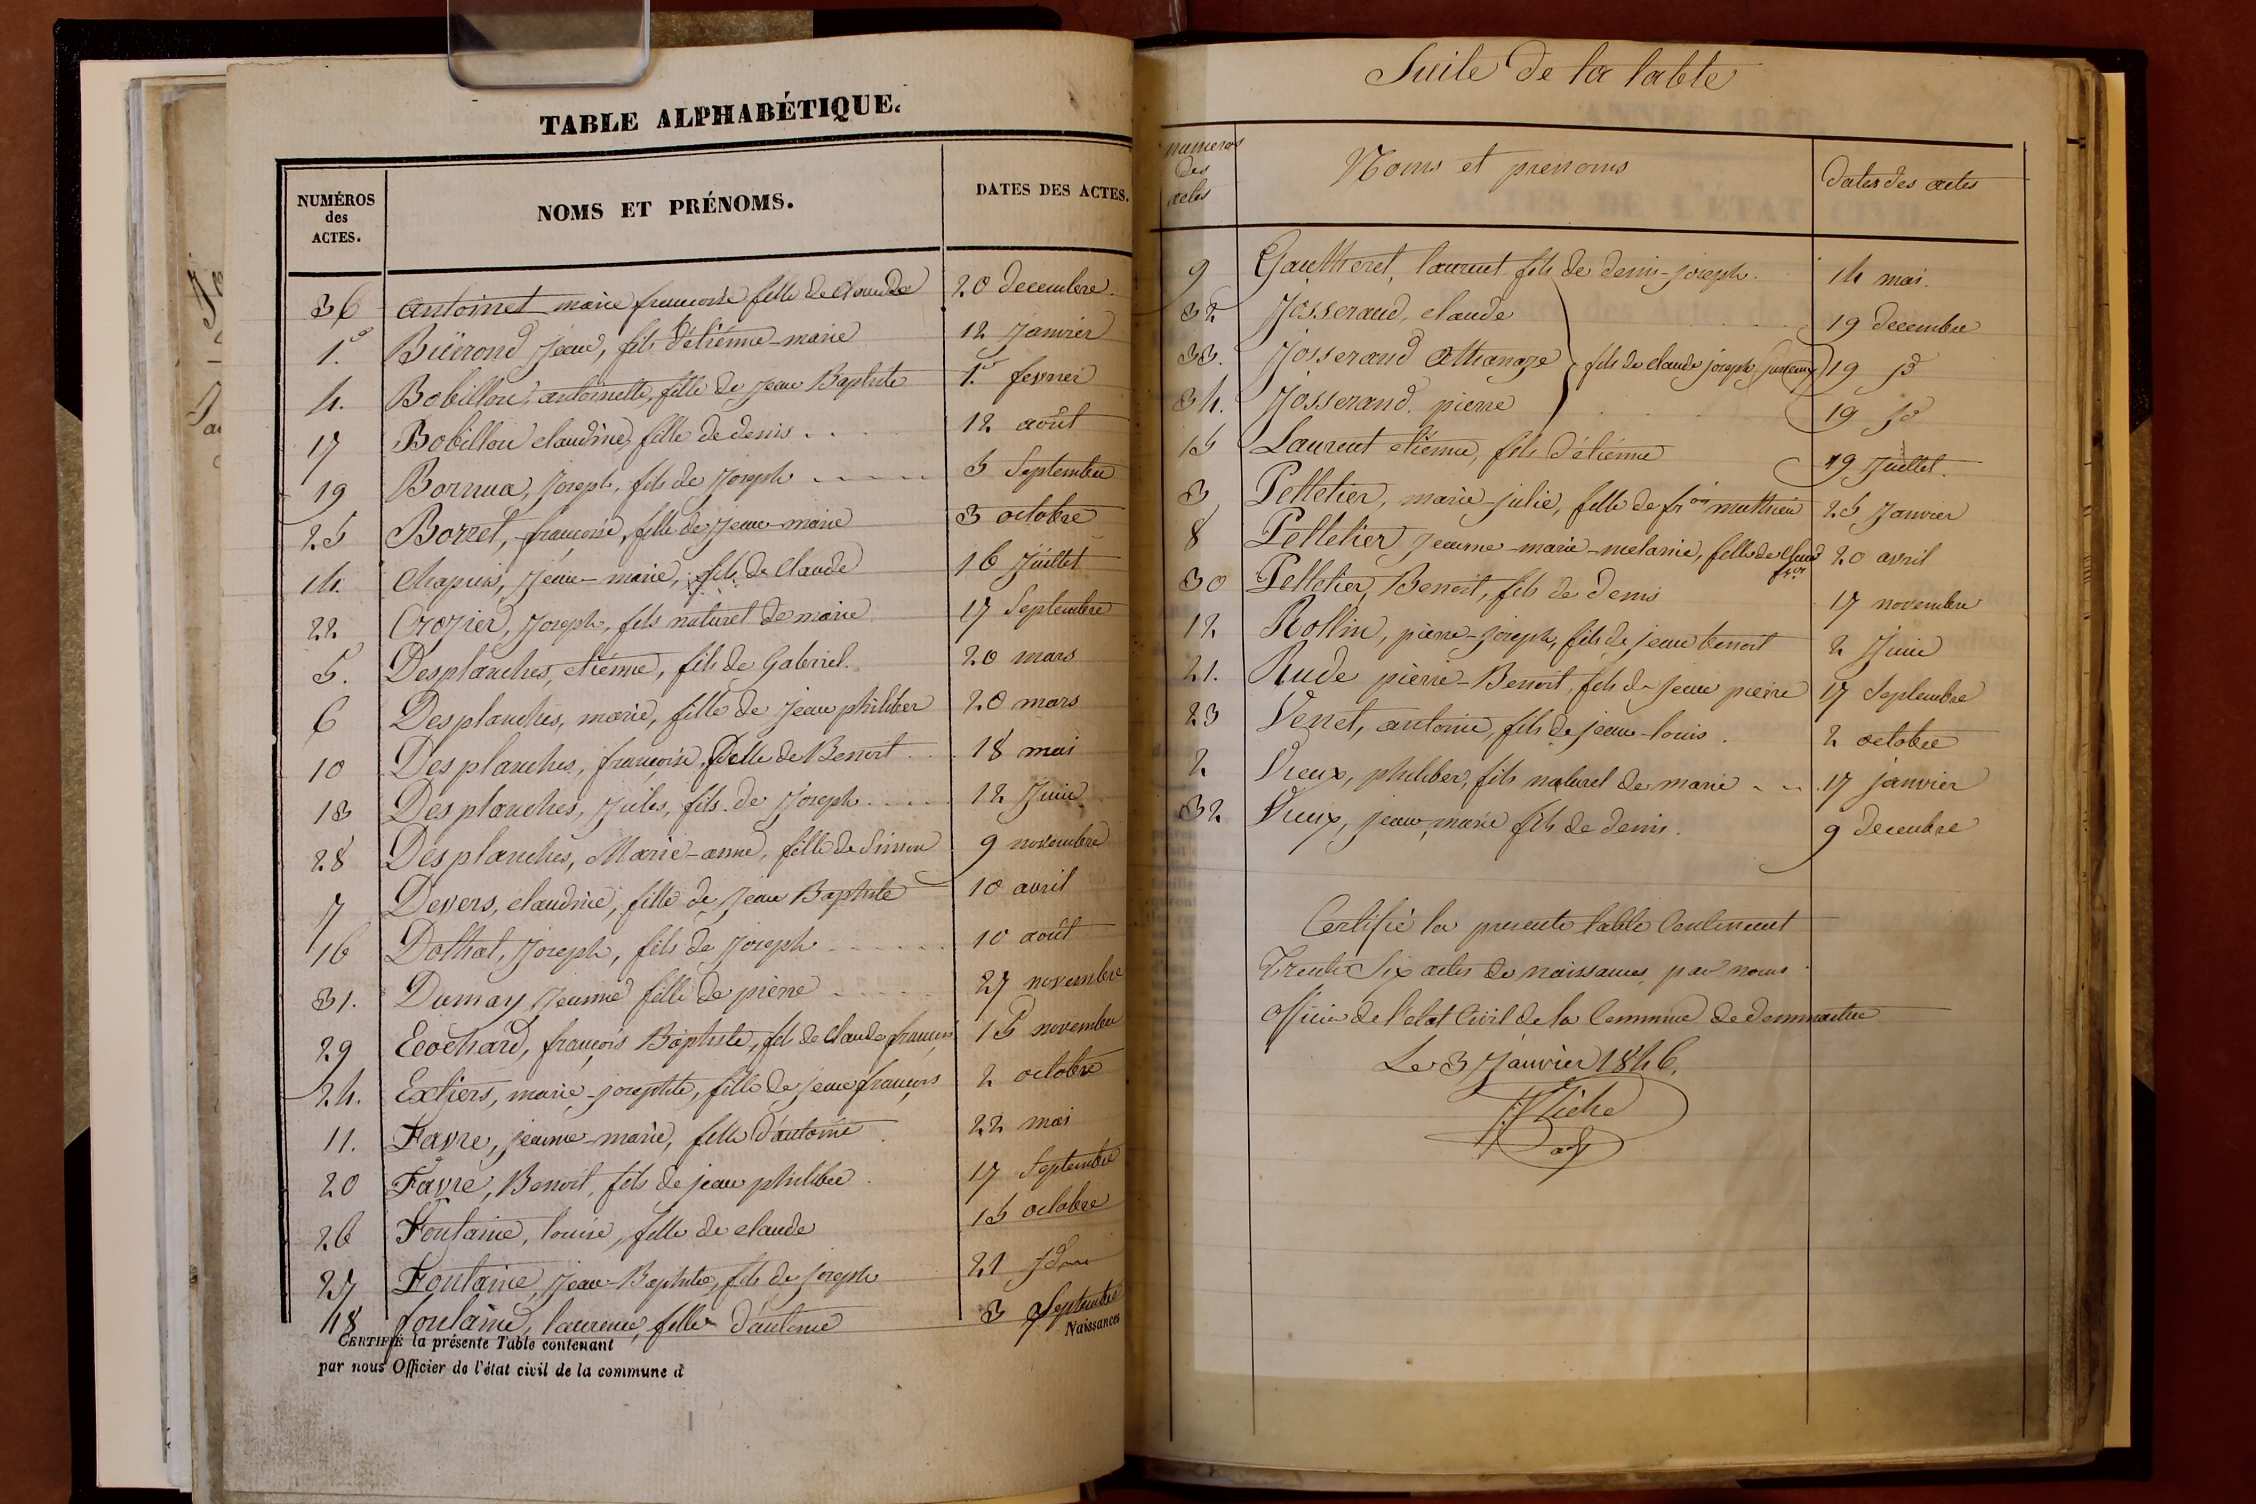 TABLE ALPHABÉTIQUE.
NUMÉROS des ACTES. NOMS ET PRÉNOMS. DATES DES ACTES.
36 antoinet marie francoise fille de Claude 20 decembre
1.º Buirond Jean, fils d'étiénne-marie 12 Janvier
4. Bobillon, antoinette, fille de Jean Baptiste 1.er fevrier
17 Bobillon claudine, fille de denis 12 août
19 Bornua, Joseph, fils de Joseph 5 Septembre
25 Borret, françoise, fille de Jean-marie 3 octobre
14. Chapuis, Jean-marie, fils de Claude 16 Juillet
22 Crozier, Joseph, fils naturel de marie 17 Septembre
5. Desplanches, etiénne, fils de Gabriel 20 mars
6 Desplanches, marie, fille de Jean philiber 20 mars
10 Desplanches, françoise, fille de Benoit 18 mai
13 Desplanches, Jules, fils de Joseph 12 Juin
28 Desplanches, Marie-anne, fille de Simon 9 novembre
7 Devers, claudine, fille de Jean Baptiste 10 avril
16 Dothat, Joseph, fils de Joseph 10 août
31. Dumay Jeanne fille de pierre 27 novembre
29 Ecochard, françois Baptiste, fils de Claude françois 15 novembre
24. Extiers, marie-josephte, fille de jean françois 2 octobre
11. Favre, jeanne-marie, fille d'antoine 22 mai
20 Favre, Benoit, fils de jean philiber 17 Septembre
26 Fontaine, louise, fille de claude 15 octobre
27 Fontaine, Jean-Baptiste, fils de joseph 21 Idem
18 fontaine, laurence, fille d'antoine 3 Septembre
CERTIFIÉ la présente Table contenant Naissances
par nous Officier de l'état civil de la commune d
Suite de la table
numeros des actes Noms et prenoms dates des actes
9 Gauthéret, laurent fils de denis-joseph. 14 mai.
32 Josserand, claude 19 decembre
33. Josserand Athanaze fils de claude joseph (jumeaux) 19 Jd
34. Josserand. pierre 19 Jd
15 Laurent etiénne, fils d'étiénne 19 Juillet.
3 Pelletier, marie-julie, fille de frois mathieu 25 Janvier
8 Pelletier jeanne-marie-melanie, fille de Claude fois 20 avril
30 Pelletier, Benoit, fils de denis 17 novembre
12 Rollin, pierre-joseph, fils de jean benoit 2 Juin
21. Rude pierre-Benoit, fils de jean pierre 17 Septembre
23 Verret, antoine, fils de jean-louis. 2 octobre
2 Vieux, philiber, fils naturel de marie 17 janvier
32 Vieux, jean, marie fils de denis. 9 decembre
Certifié la presente table Contenant
Trente Six actes de naissances, par nous
officier de l'etat Civil de la Commune de dommartin
Le 3 Janvier 1846.